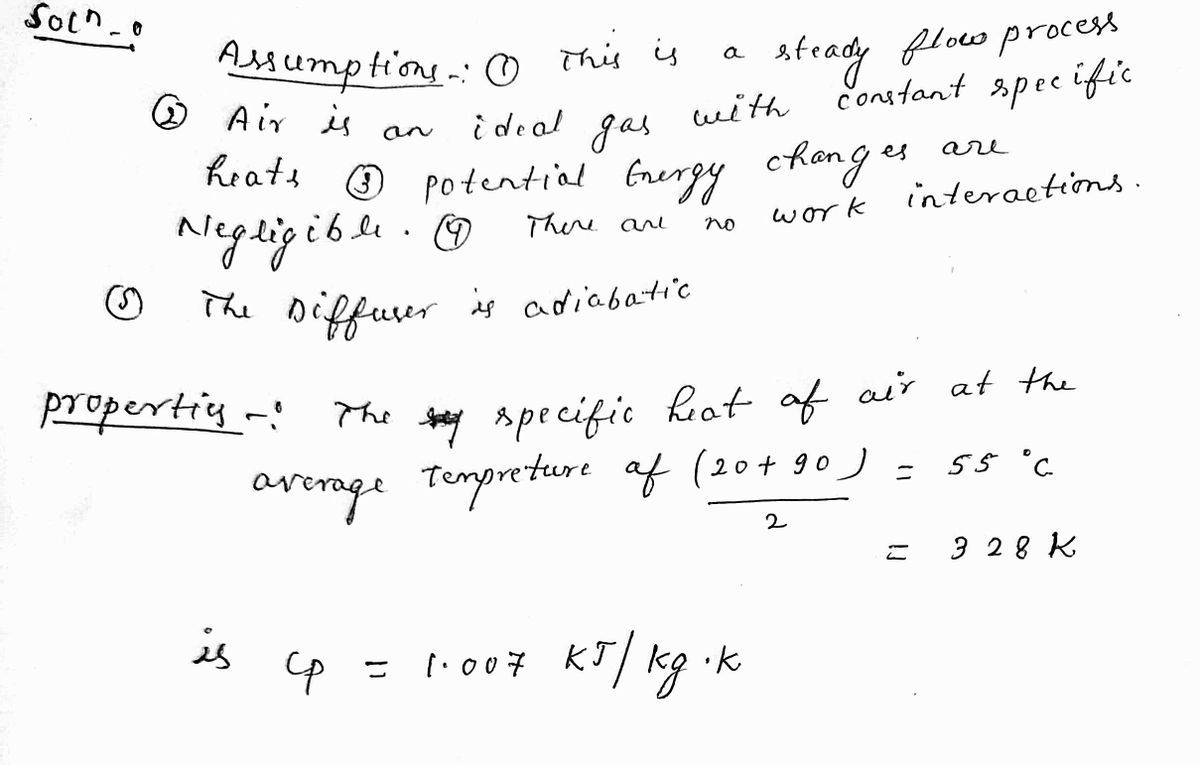 Soln -:
Assumptions -: ① This is a steady flow process
② Air is an ideal gas with constant specific
heats ③ potential Energy changes are
Negligible. ④ There are no work interactions.
⑤ The Diffuser is adiabatic
properties -: The specific heat of air at the
average Tempreture of (20 + 90) / 2 = 55 °C
= 328 K
is Cp = 1.007 KJ/kg.k